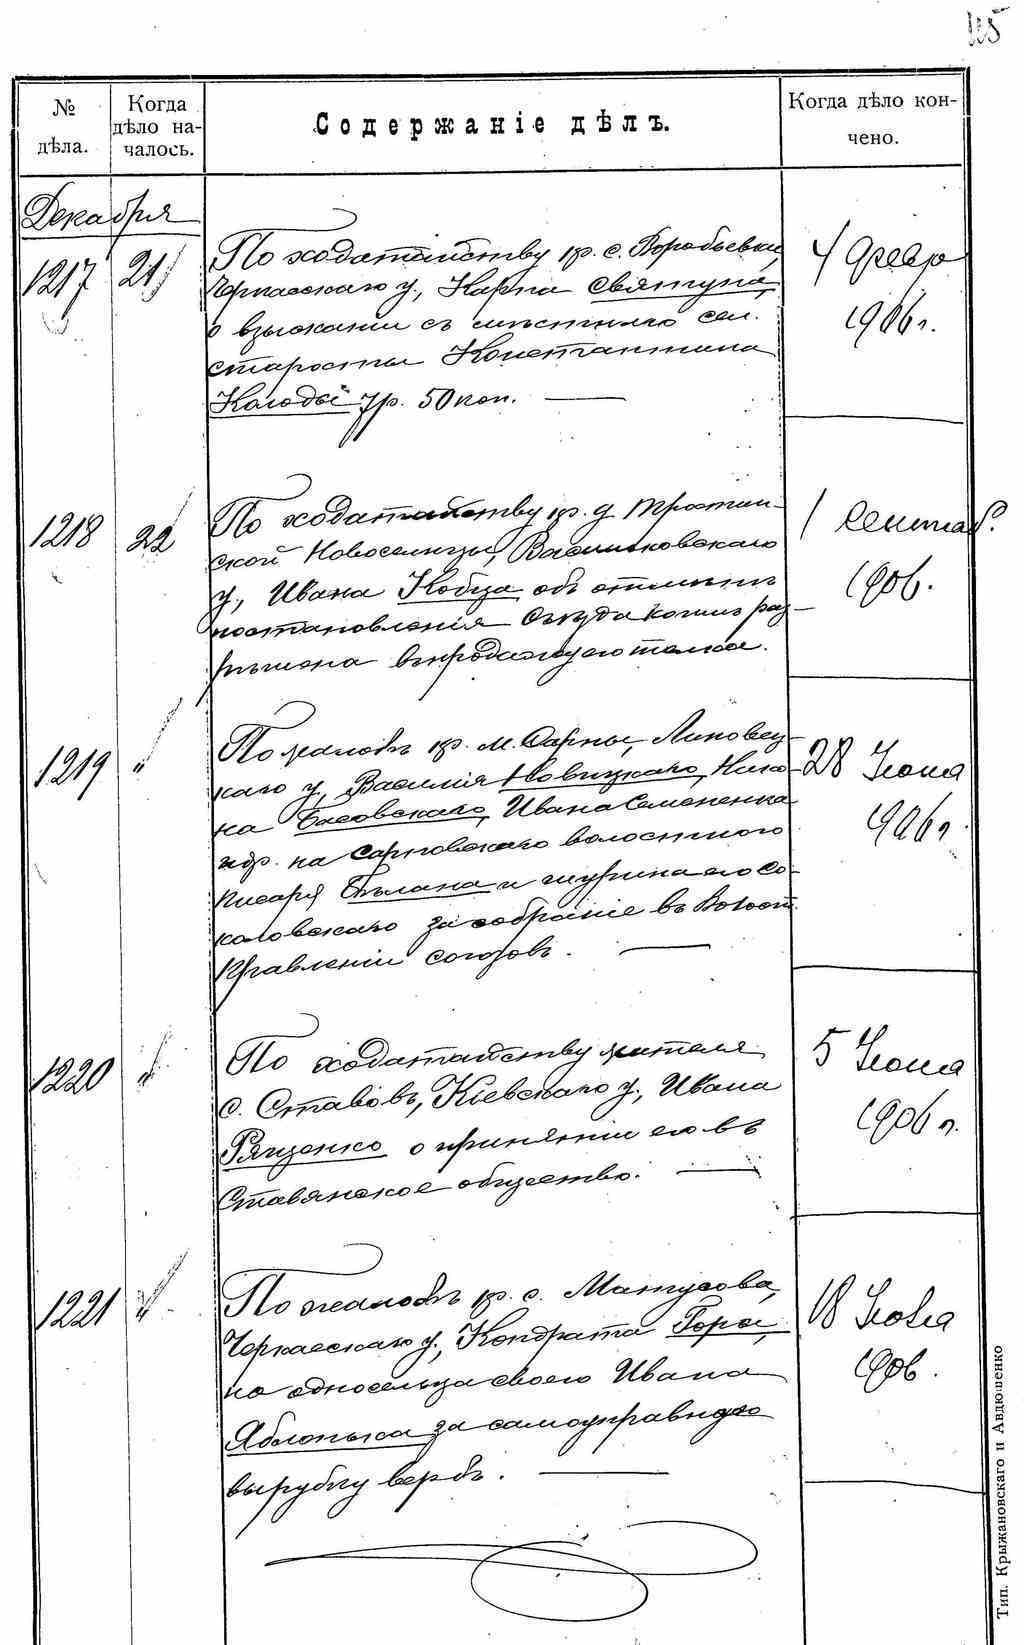 115
№ дѣла.
Когда дѣло началось.
Содержаніе дѣлъ.
Когда дѣло кончено.
Декабря
1217
21
По ходатайству кр. с. Воробьевки,
Черкасскаго у., Карпа Святуна,
о взысканіи съ мѣстнаго сел.
старосты Константина
Колоды 7 р. 50 коп.
4 Февр.
1906 г.
1218
22
По ходатайству кр. д. Тростин-
ской Новоселицы, Васильковскаго
у., Ивана Кобца объ отмѣнѣ
постановленія Съѣзда коимъ раз-
рѣшена
1 Сентяб.
1906.
1219
"
По жалобѣ кр. м. Сарны, Липовец-
каго у., Василія Новицкаго, Ника-
на Басовскаго, Ивана Семененка
и др. на Сарновскаго волостного
писаря Бѣлана и шурина его Со-
коловскаго за собраніе въ Волост.
Правленіи союзовъ.
28 Іюня
1906 г.
1220
"
По ходатайству жителя
с. Ставовъ, Кіевскаго у., Ивана
Рященко о принятіи его въ
Ставянское общество.
5 Іюня
1906 г.
1221
"
По жалобѣ кр. с. Матусова,
Черкасскаго у., Кондрата Горы,
на односельца своего Ивана
Яблонька за самоуправную
вырубку вербъ.
18 Іюля
1906.
Тип. Крыжановскаго и Авдюшенко